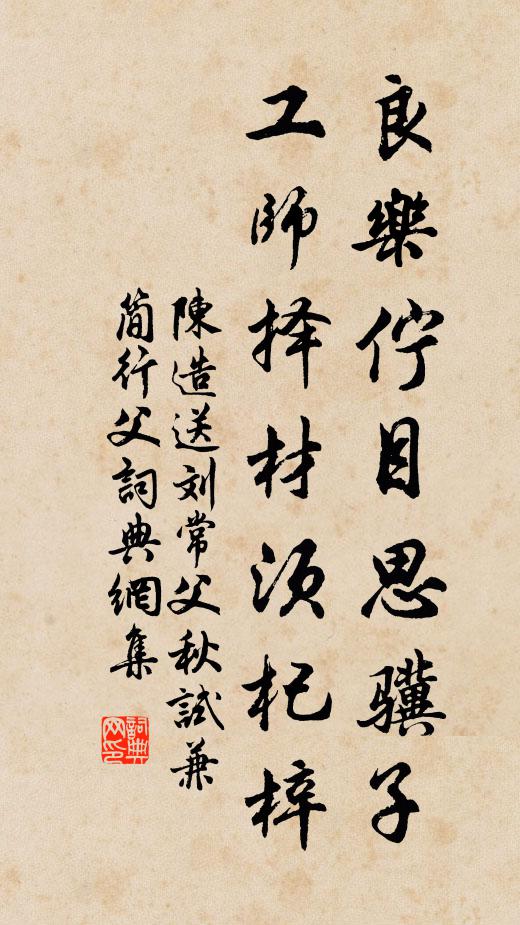 良樂佇目思骥子
工師择材须杞梓
陳造送刘常父秋試兼
简行父詞典網集
詞典网印